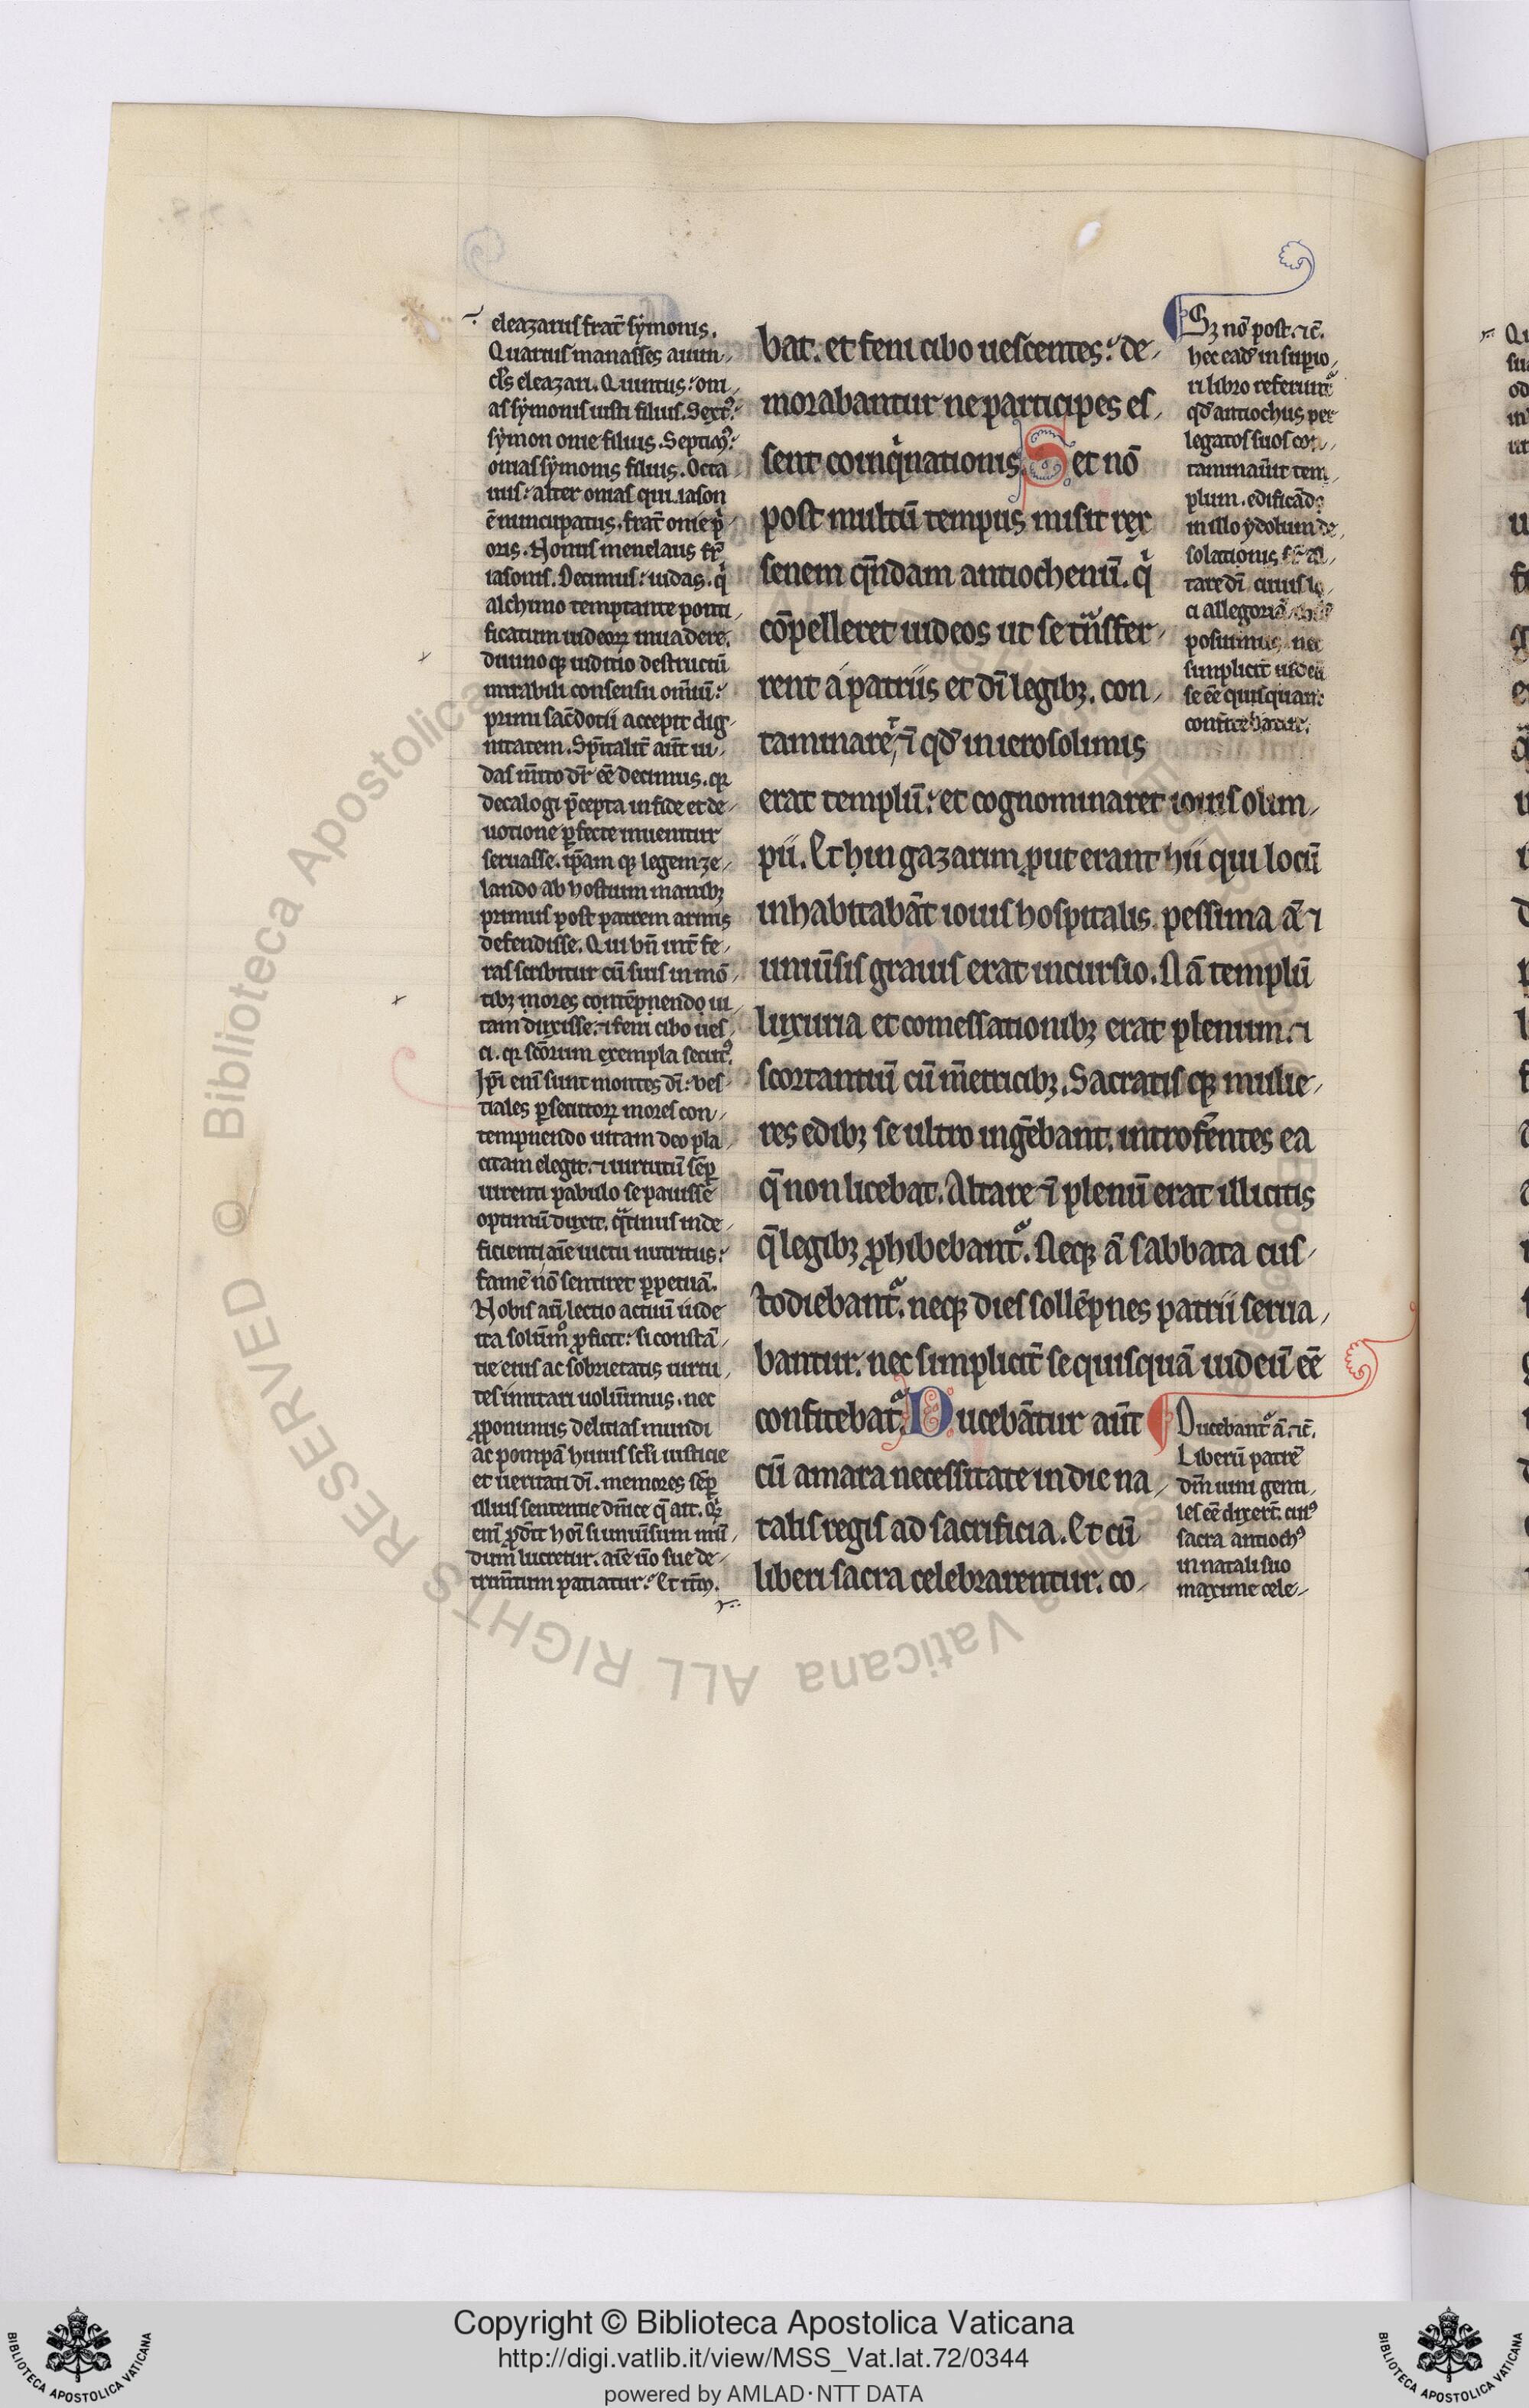 eleazarus frat̄ sẏmonis.
Quartus manasses auun-
cl̄s eleazari. Quintus: oni-
as sẏmonis iusti filius. Sext⁹:
sẏmon onie filius. Septim⁹:
onias sẏmonis filius. Octa
uus: alter onias qui iason
ē nuncupatus. frat̄ onie p̄-
oris. Nonus menelaus fr̄
iasonis. Decimus: iudas. qͥ
alchimo temptante ponti-
ficatum iudeoꝝ inuadere.
diuinoqꝫ iuditio destructū
mirabili consensu om̄iū:
primi sac̄dotii accepit dig-
nitatem. Sp̄italit̄ aūt iu-
das m̄ito dr̄ eē decimus. qꝛ
decalogi p̄cepta in fide et de-
uotione ꝑfecte inuenitur
seruasse. ip̄am qꝫ legem ze-
lando ab hostium manibꝫ
primus post patrem armis
defendisse. Qui bn̄ int̄ fe-
ras scribitur cū suis in mō-
tibꝫ mores contēpnendo ui-
tam duxisse. ⁊ feni cibo ues-
ci. qꝛ scōrum exempla secut⁹.
Ip̄i enī sunt montes dī: bes-
tiales ꝑsecutoꝝ mores con-
tempnendo uitam deo pla-
citam elegit. ⁊ uirtutū semꝑ
uirenti pabulo se pauisse
optimū duxit. qͣtinus inde-
ficienti aīe uictu nutritus:
famē nō sentiret ꝑpetuā.
Nobis aūt lectio actuū iude
ita solūmͦ ꝓficit: si constā-
tie eius ac sobrietatis uirtu-
tes imitari uolum̄mus. nec
p̄ponimus delitias mundi
ac pompā huius sc̄li iusticie
et ueritati dī. memores semꝑ
illius sententie dn̄ice q̄ ait. Qͥd
enī ꝓdēst hoī si uniūsum mū-
dum lucretur. aīe ūo sue de-
trim̄tum patiatur: Et itm̄.
bat. et feni cibo uescentes: de-
morabantur ne participes es-
sent coinqͥnationis. Set nō
post multū tempus misit rex
senem qn̄dam antiochenū. qͥ
cōpelleret iudeos ut se tͣnsfer-
rent á patriis et dī legibꝫ. con-
taminare ⁊ qd̄ in ierosolimis
erat templū: et cognominaret iouis olim-
pii. Et hin gazarim ꝓut erant hii qui locū
inhabitabāt iouis hospitalis. pessima ā ⁊
uniūsis grauis erat incursio. Nā templū
luxuria et comessationibꝫ erat plenum. ⁊
scortantiū cū m̄etricibꝫ. Sacratis qꝫ mulie-
res edibꝫ se ultro ingēbant. introfētes ea
q̄ non licebat. Altare ī plenū erat illicitis
q̄ legibꝫ ꝓhibebantͬ. Neqꝫ ā sabbata cus-
todiebantͬ. neqꝫ dies sollēpnes patrii serua-
bantur. nec simplicit̄ se quisquā iudeū eē
confitebatͬ. Ducebātur aūt
cū amara necessitate in die na-
talis regis ad sacrificia. Et cū
liberi sacra celebrarentur. co-
Sꝫ nō post. ⁊c̄.
hec ead̄ in suꝑio-
ri libro referuntͬ
qd̄ antiochus per
legatos suos con-
taminaūit tem-
plum. edificādo
in illo ydolum de-
solationis
tare dī cuius lo-
ci allegoriā
posuimus nec
simplicit̄ iudeū
se eē quisquam
confitebatur.
Ducebantͬ ā. ⁊c̄.
Liberū patrē
dm̄ uini genti-
les eē dixert̄. cui⁹
sacra antioch⁹
in natali suo
maxime cele-
Copyright © Biblioteca Apostolica Vaticana
http://digi.vatlib.it/view/MSS_Vat.lat.72/0344
powered by AMLAD·NTT DATA
BIBLIOTECA APOSTOLICA VATICANA
BIBLIOTECA APOSTOLICA VATICANA
Biblioteca Apostolica Vaticana ALL RIGHTS RESERVED ©